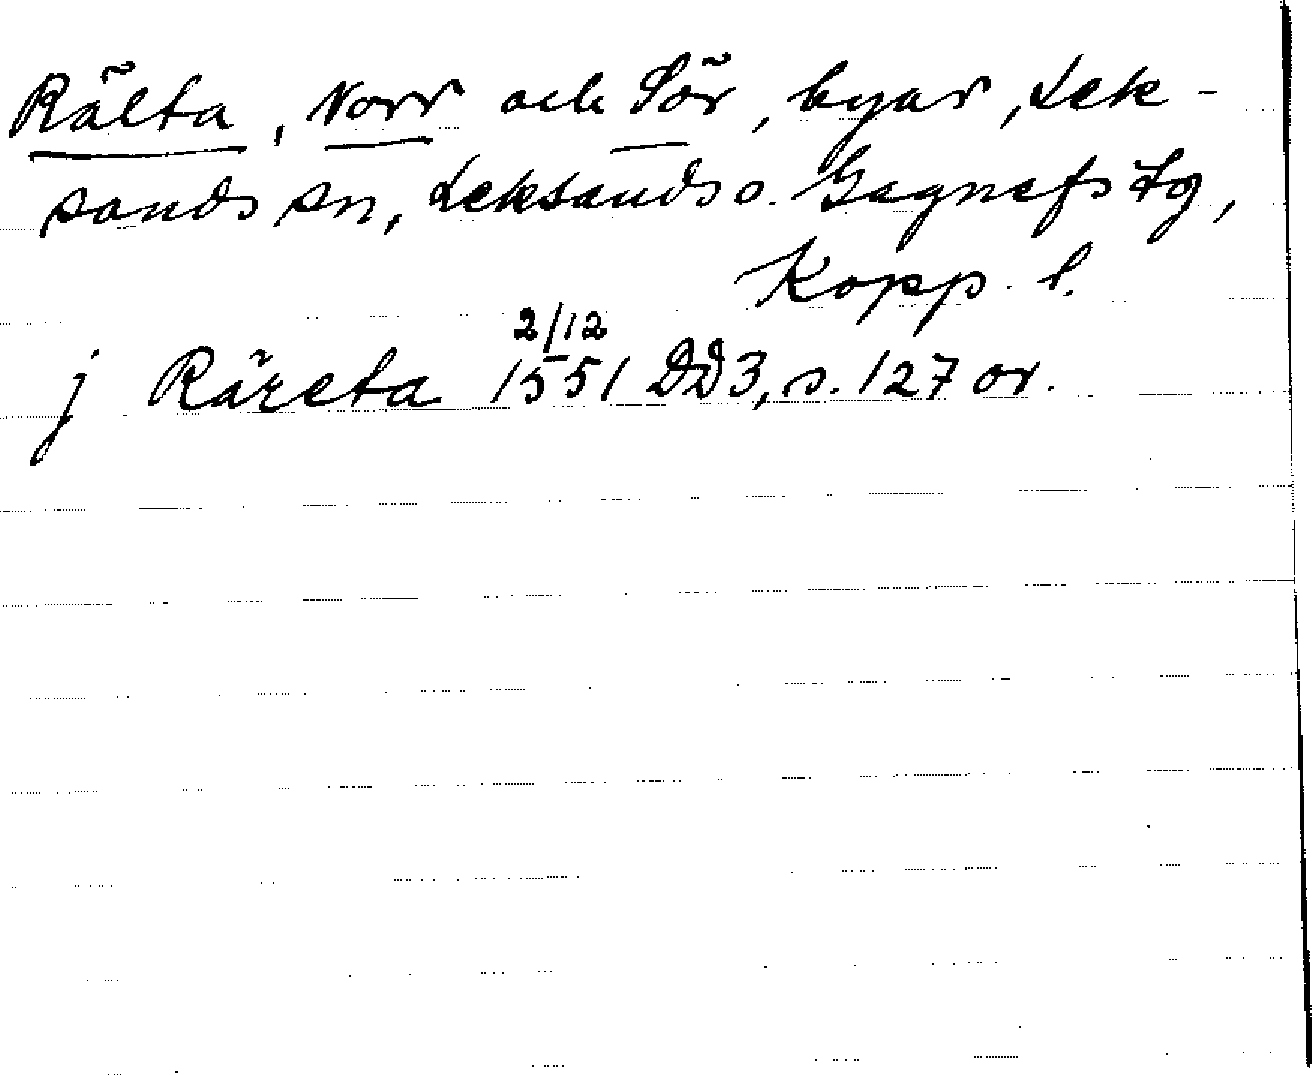 Rälta, Norr och Sör, byar, Lek-
sands sn, Leksands o. Gagnefs tg,
Kopp. l.
2/12
j Räreta 1551 DD3, s. 127 or.